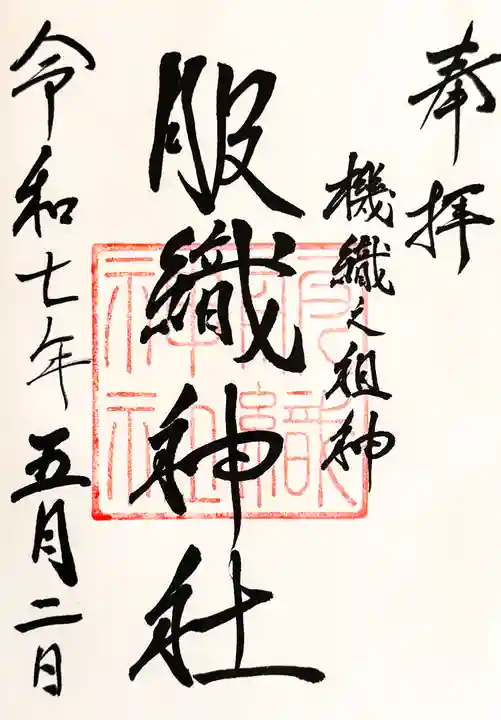 奉拝
機織之祖神
服織神社
令和七年五月二日
服織神社